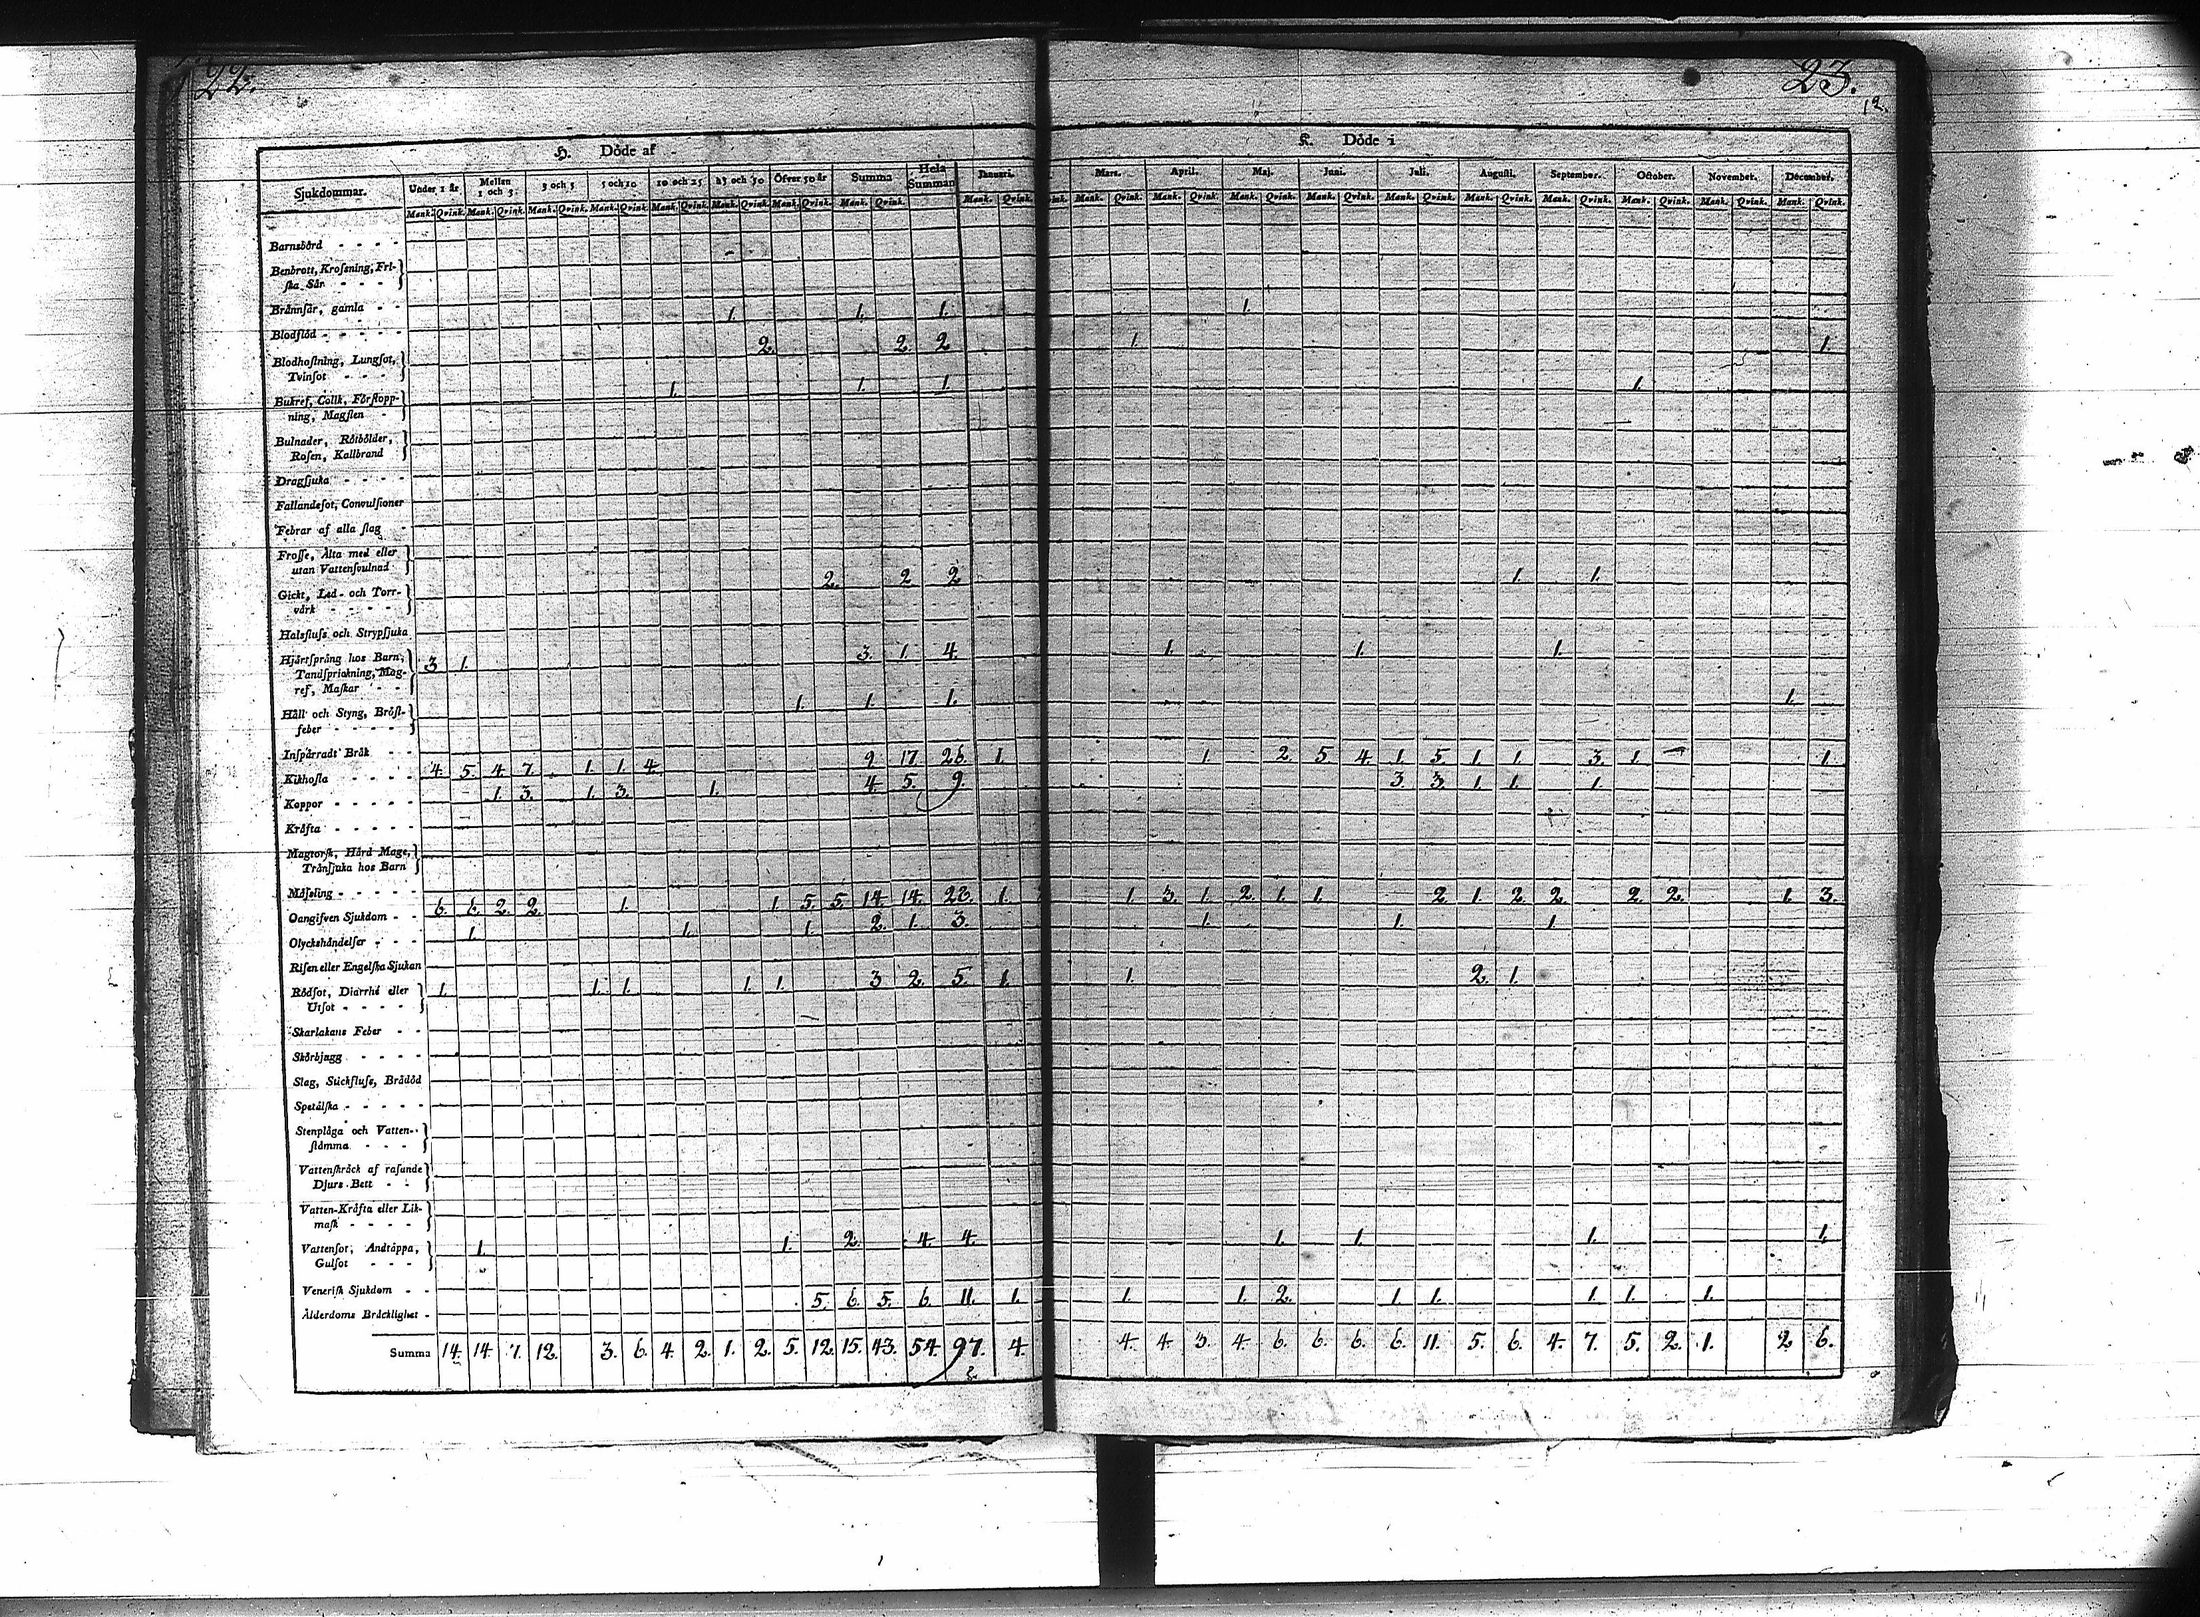 22.
23.
12.
H. Döde af
K. Döde i
Sjukdommar. Under 1 år. Mellen 1 och 3. 3 och 5 5 och 10 10 och 25 25 och 50 Öfver 50 år Summa Hela Summan Januari. Mars. April. Maj. Juni. Juli. Augusti. September. October. November. December.
Mank. Qvink. Mank. Qvink. Mank. Qvink. Mank. Qvink. Mank. Qvink. Mank. Qvink. Mank. Qvink. Mank. Qvink. Mank. Qvink. Mank. Qvink. Mank. Qvink. Mank. Qvink. Mank. Qvink. Mank. Qvink. Mank. Qvink. Mank. Qvink. Mank. Qvink. Mank. Qvink. Mank. Qvink.
Barnsbörd
Benbrott, Krosſning, Fri-
ſka Sår
Brännſår, gamla 1. 1. 1. 1.
Blodflöd 2. 2. 2 1. 1.
Blodhoſtning, Lungſot,
Tvinſot 1. 1. 1. 1.
Bukref, Colik, Förſtopp-
ning, Magſten
Bulnader, Rötbölder,
Roſen, Kallbrand
Dragſjuka
Fallandeſot, Convulſioner
Febrar af alla ſlag
Froſſe, Älta med eller
utan Vattenſvulnad 2. 2 2 1. 1.
Gickt, Led- och Torr-
värk
Halsfluſs och Strypſjuka 3 1. 3. 1. 4. 1. 1. 1.
Hjärtſprång hos Barn,
Tandſprickning, Mag-
ref, Maſkar 1. 1. 1. 1.
Håll och Styng, Bröſt-
feber
Inſpärradt Bråk 4. 5. 4. 7. 1. 1. 4. 9 17 26. 1. 1. 2 5 4. 1. 5. 1. 1. 3. 1. 1.
Kikhoſta 1. 3. 1. 3. 1. 4. 5. 9. 3 3. 1. 1. 1.
Koppor
Kräfta
Magtorſk, Hård Mage,
Tränſjuka hos Barn
Mäſsling 6. 6. 2. 2. 1. 1. 5. 5. 14. 14. 28. 1. 1. 3. 1. 2. 1. 1. 2. 1. 2. 2. 2. 2. 1. 3.
Oangifven Sjukdom 1. 1. 1. 2. 1. 3. 1. 1. 1.
Olyckshändelſer
Riſen eller Engelſka Sjukan 1. 1. 1. 1. 1. 3 2. 5. 1. 1. 2. 1.
Rödſot, Diarrhé eller
Utſot
Skarlakans Feber
Skörbjugg
Slag, Stickfluſs, Brådöd
Spetälſka
Stenplåga och Vatten-
ſtämma
Vattenſkräck af raſande
Djurs Bett
Vatten-Kräfta eller Lik-
maſk 1. 1. 2. 4. 4. 1. 1. 1. 1.
Vattenſot, Andtäppa,
Gulſot
Veneriſk Sjukdom 5. 6. 5. 6. 11. 1. 1. 1. 2. 1. 1. 1. 1. 1.
Ålderdoms Bräcklighet
Summa 14. 14. 7. 12. 3. 6. 4. 2. 1. 2. 5. 12. 15. 43. 54. 97. 4. 4. 4. 3. 4. 6. 6. 6. 6. 11. 5. 6. 4. 7. 5. 2. 1. 2 6.